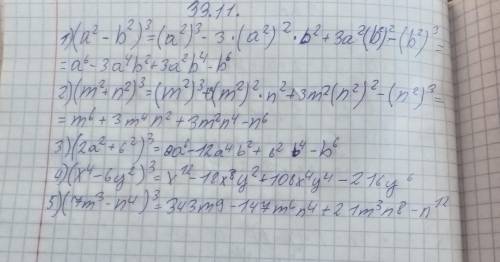 39.11.
1) (a² - b²)³ = (a²)³ - 3 · (a²)² · b² + 3a²(b²)² - (b²)³ =
= a⁶ - 3a⁴b² + 3a²b⁴ - b⁶
2) (m² + n²)³ = (m²)³ + (m²)² · n² + 3m²(n²)² - (n²)³ =
= m⁶ + 3m⁴n² + 3m²n⁴ - n⁶
3) (2a² + b²)³ = 8a⁶ - 12a⁴b² + 6² b⁴ - b⁶
4) (x⁴ - 6y²)³ = x¹² - 18x⁸y² + 108x⁴y⁴ - 216y⁶
5) (7m³ - n⁴)³ = 343m9 - 147m⁶n⁴ + 21m³n8 - n¹²